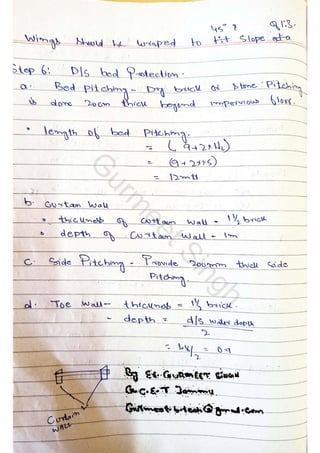 45° ?
Wings should be wraped to fit slope at a
Step 6: D/s bed Protection.
a. Bed pitching - Dry brick or stone Pitching
is done 20cm thick beyond impervious floor.
• length of bed Pitching.
= (9+2×
= (9+2×1.5)
= 12mts
b. Curtain Wall
• thickness of curtain wall - 1½ brick
• depth of Curtain wall - 1m
c. Side Pitching - Provide 200mm thick side
Pitching.
d. Toe Wall - thickness = 1½ brick.
- depth = d/s water depth
2
/2 = 0.9
Curtain
WALL
By Er. GURMEET SINGH
G.C.E.T Jammu
Gurmeet Singh